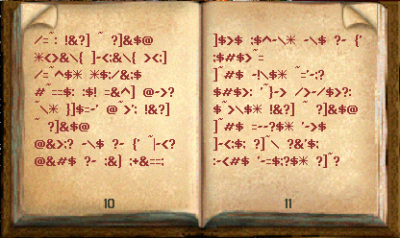 /=˜: !&?] ˜ ?]&$@
✳<>&\{ ]-<:&\{ ><:]
/=˜^$✳ ✳$:/&:$
#˜==$: :$! =&^] @->?
˜\✳ }]$=-' @˜>': !&?]
˜ ?]&$@
@&>:? -\$ ?- {' ˜|-<?
@&#$ ?- :&] :+&==:
10
]$>$ :$^-\✳ -\$ ?- {'
:$#$>˜=
]˜#$ -!\$✳ ˜='-:?
$#$>: '˜}-> />-/$>?:
$˜>\$✳ !&?] ˜ ?]&$@
]˜#$ =--?$✳ '->$
]-<:$: ?]˜\ ?&'$:
:-<#$ '-=$:?$✳ ?]˜?
11